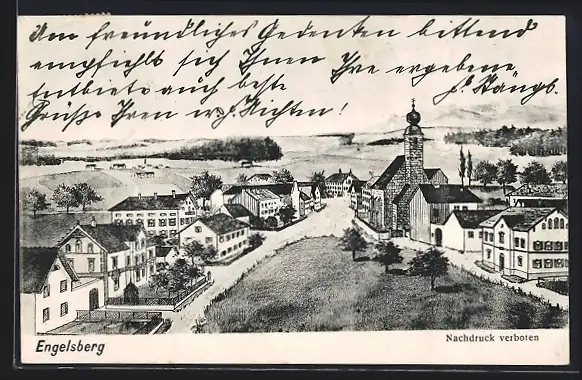 Um freundliches Gedenken bittend
empfiehlt sich Ihnen Ihre ergebene
Entbiete auch beste
Grüße Ihren
Nichten!
Engelsberg
Nachdruck verboten